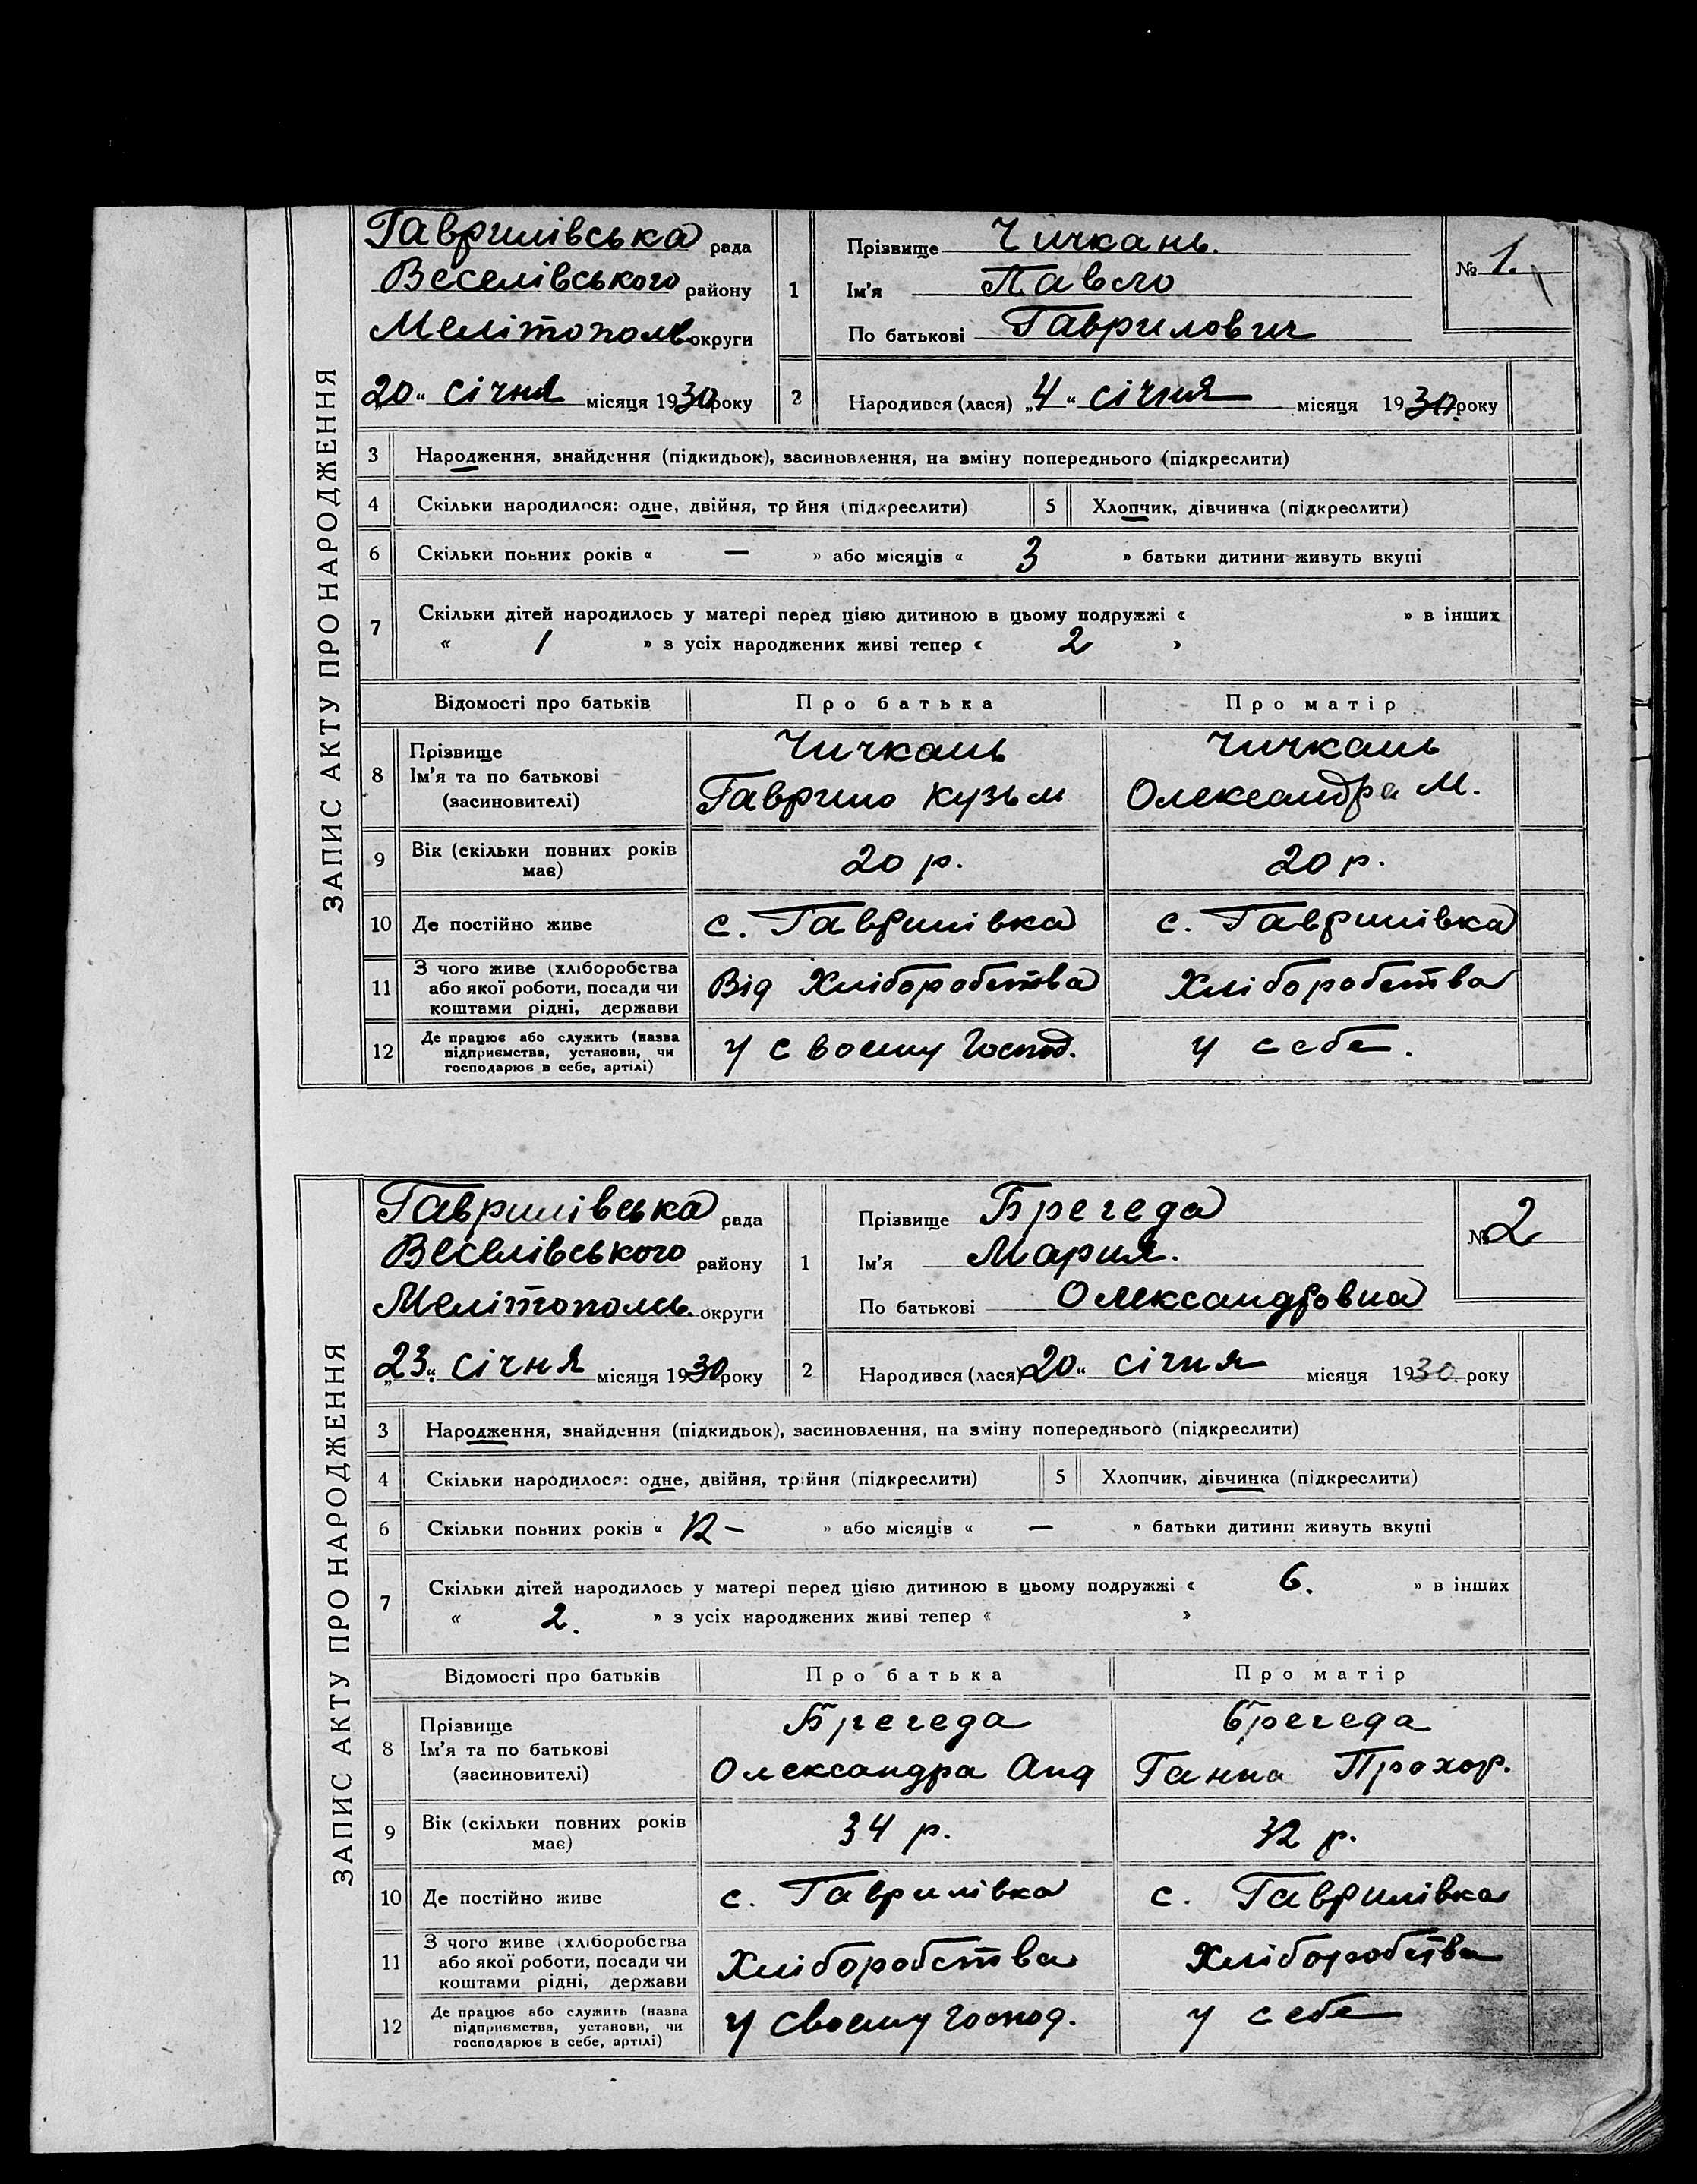 ЗАПИС АКТУ ПРО НАРОДЖЕННЯ
Гаврилівська рада
Веселівського району
Мелітополь округи
„20“ січня місяця 1930 року
1 Прізвище Чичкань.
Ім'я Павло
По батькові Гаврилович
№ 1.
2 Народився (лася) „4“ січня місяця 1930 року
3 Народження, знайдення (підкидьок), засиновлення, на зміну попереднього (підкреслити)
4 Скільки народилося: одне, двійня, трійня (підкреслити) 5 Хлопчик, дівчинка (підкреслити)
6 Скільки повних років « — » або місяців « 3 » батьки дитини живуть вкупі
7 Скільки дітей народилось у матері перед цією дитиною в цьому подружжі « » в інших
« 1 » з усіх народжених живі тепер « 2 »
Відомості про батьків Про батька Про матір
8 Прізвище Чичкань Чичкань
Ім'я та по батькові Гаврило Кузьм Олександра М.
(засиновителі)
9 Вік (скільки повних років має) 20 р. 20 р.
10 Де постійно живе с. Гаврилівка с. Гаврилівка
11 З чого живе (хліборобства
або якої роботи, посади чи Від Хліборобства Хліборобства
коштами рідні, держави
12 Де працює або служить (назва
підприємства, установи, чи у своему Господ. у себе.
господарює в себе, артілі)
ЗАПИС АКТУ ПРО НАРОДЖЕННЯ
Гаврилівська рада
Веселівського району
Мелітополь. округи
„23“ січня місяця 1930 року
1 Прізвище Брегеда
Ім'я Мария.
По батькові Олександровна
№ 2
2 Народився (лася) 20“ січня місяця 1930. року
3 Народження, знайдення (підкидьок), засиновлення, на зміну попереднього (підкреслити)
4 Скільки народилося: одне, двійня, трійня (підкреслити) 5 Хлопчик, дівчинка (підкреслити)
6 Скільки повних років « 12 – » або місяців « — » батьки дитини живуть вкупі
7 Скільки дітей народилось у матері перед цією дитиною в цьому подружжі « 6. » в інших
« 2. » з усіх народжених живі тепер « »
Відомості про батьків Про батька Про матір
8 Прізвище Брегеда Брегеда
Ім'я та по батькові Олександра Анд Ганна Прохор.
(засиновителі)
9 Вік (скільки повних років має) 34 р. 32 р.
10 Де постійно живе с. Гаврилівка с. Гаврилівка
11 З чого живе (хліборобства
або якої роботи, посади чи Хліборобства Хліборобства
коштами рідні, держави
12 Де працює або служить (назва
підприємства, установи, чи у своему Господ. у себе
господарює в себе, артілі)